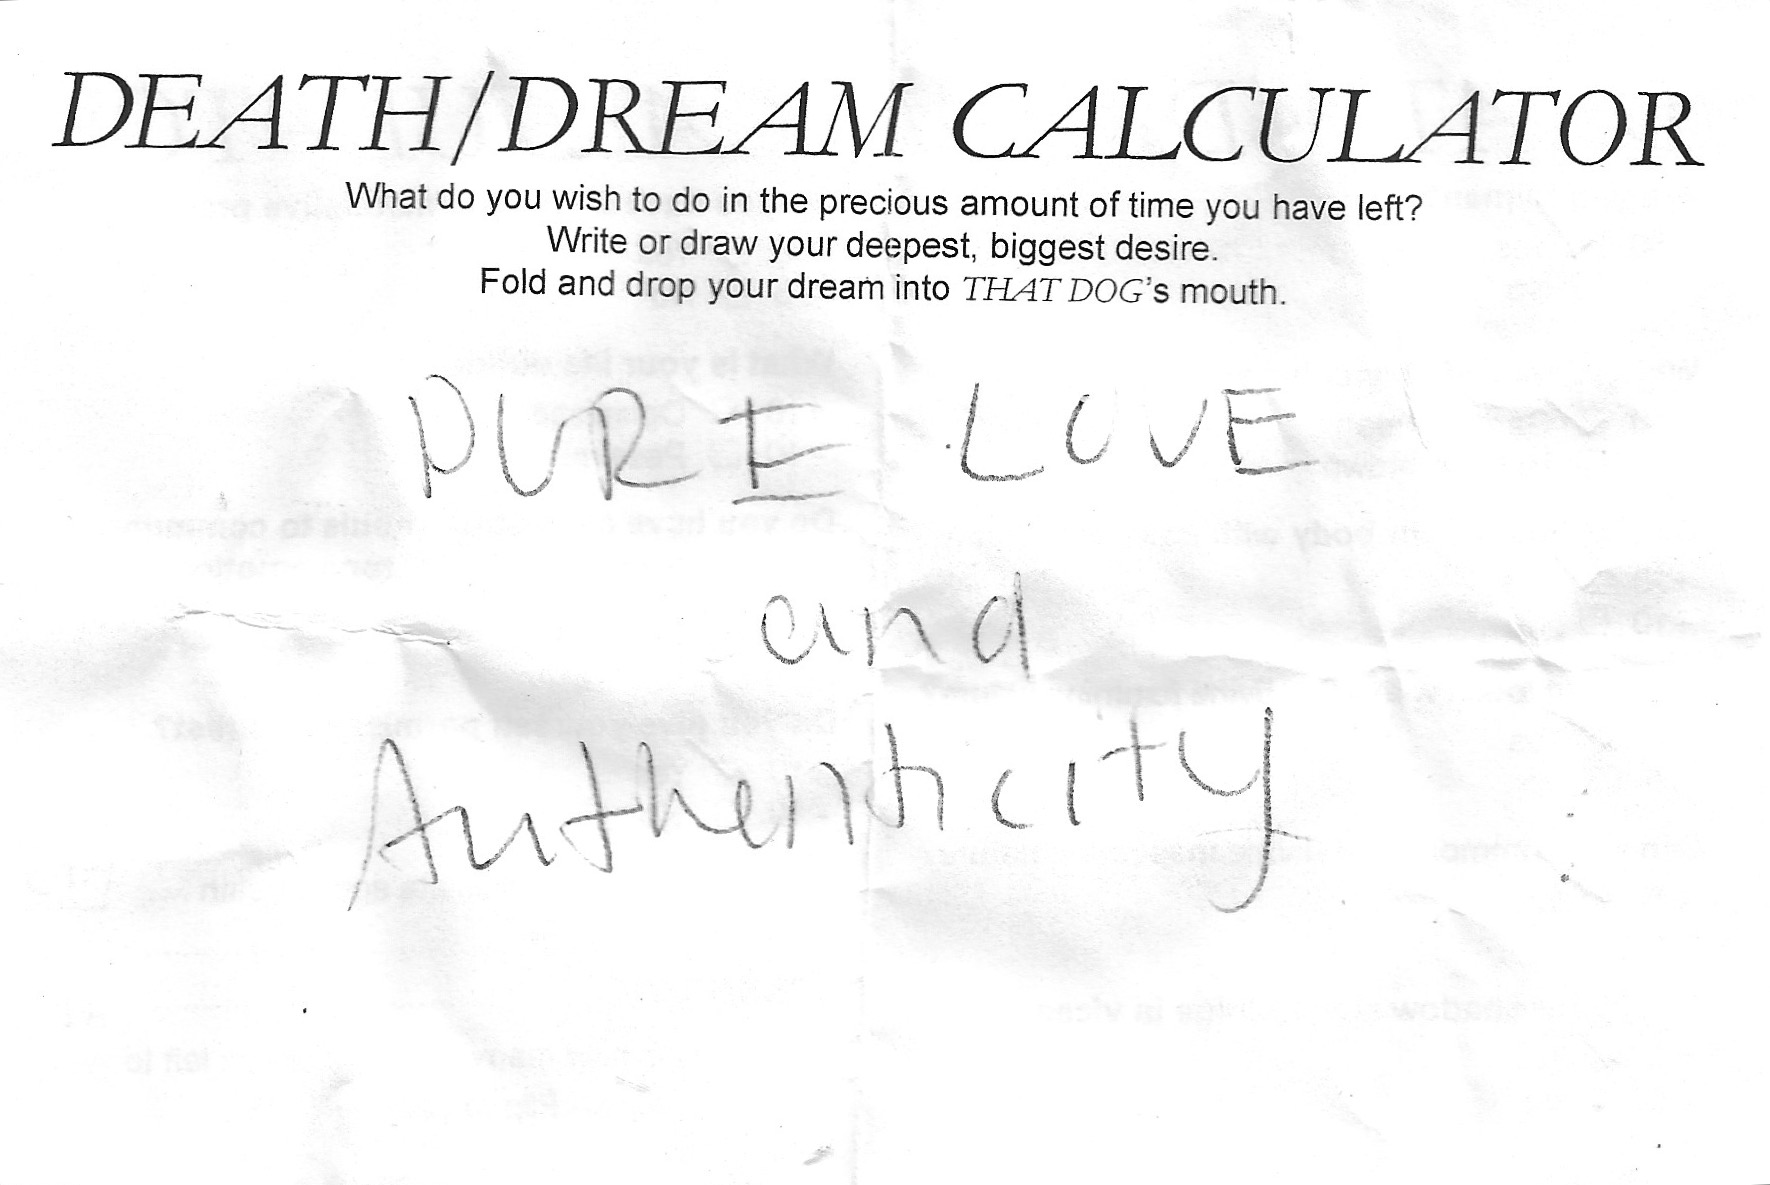 DEATH/DREAM CALCULATOR
What do you wish to do in the precious amount of time you have left?
Write or draw your deepest, biggest desire.
Fold and drop your dream into THAT DOG's mouth.
PURE LOVE
and
Authenticity